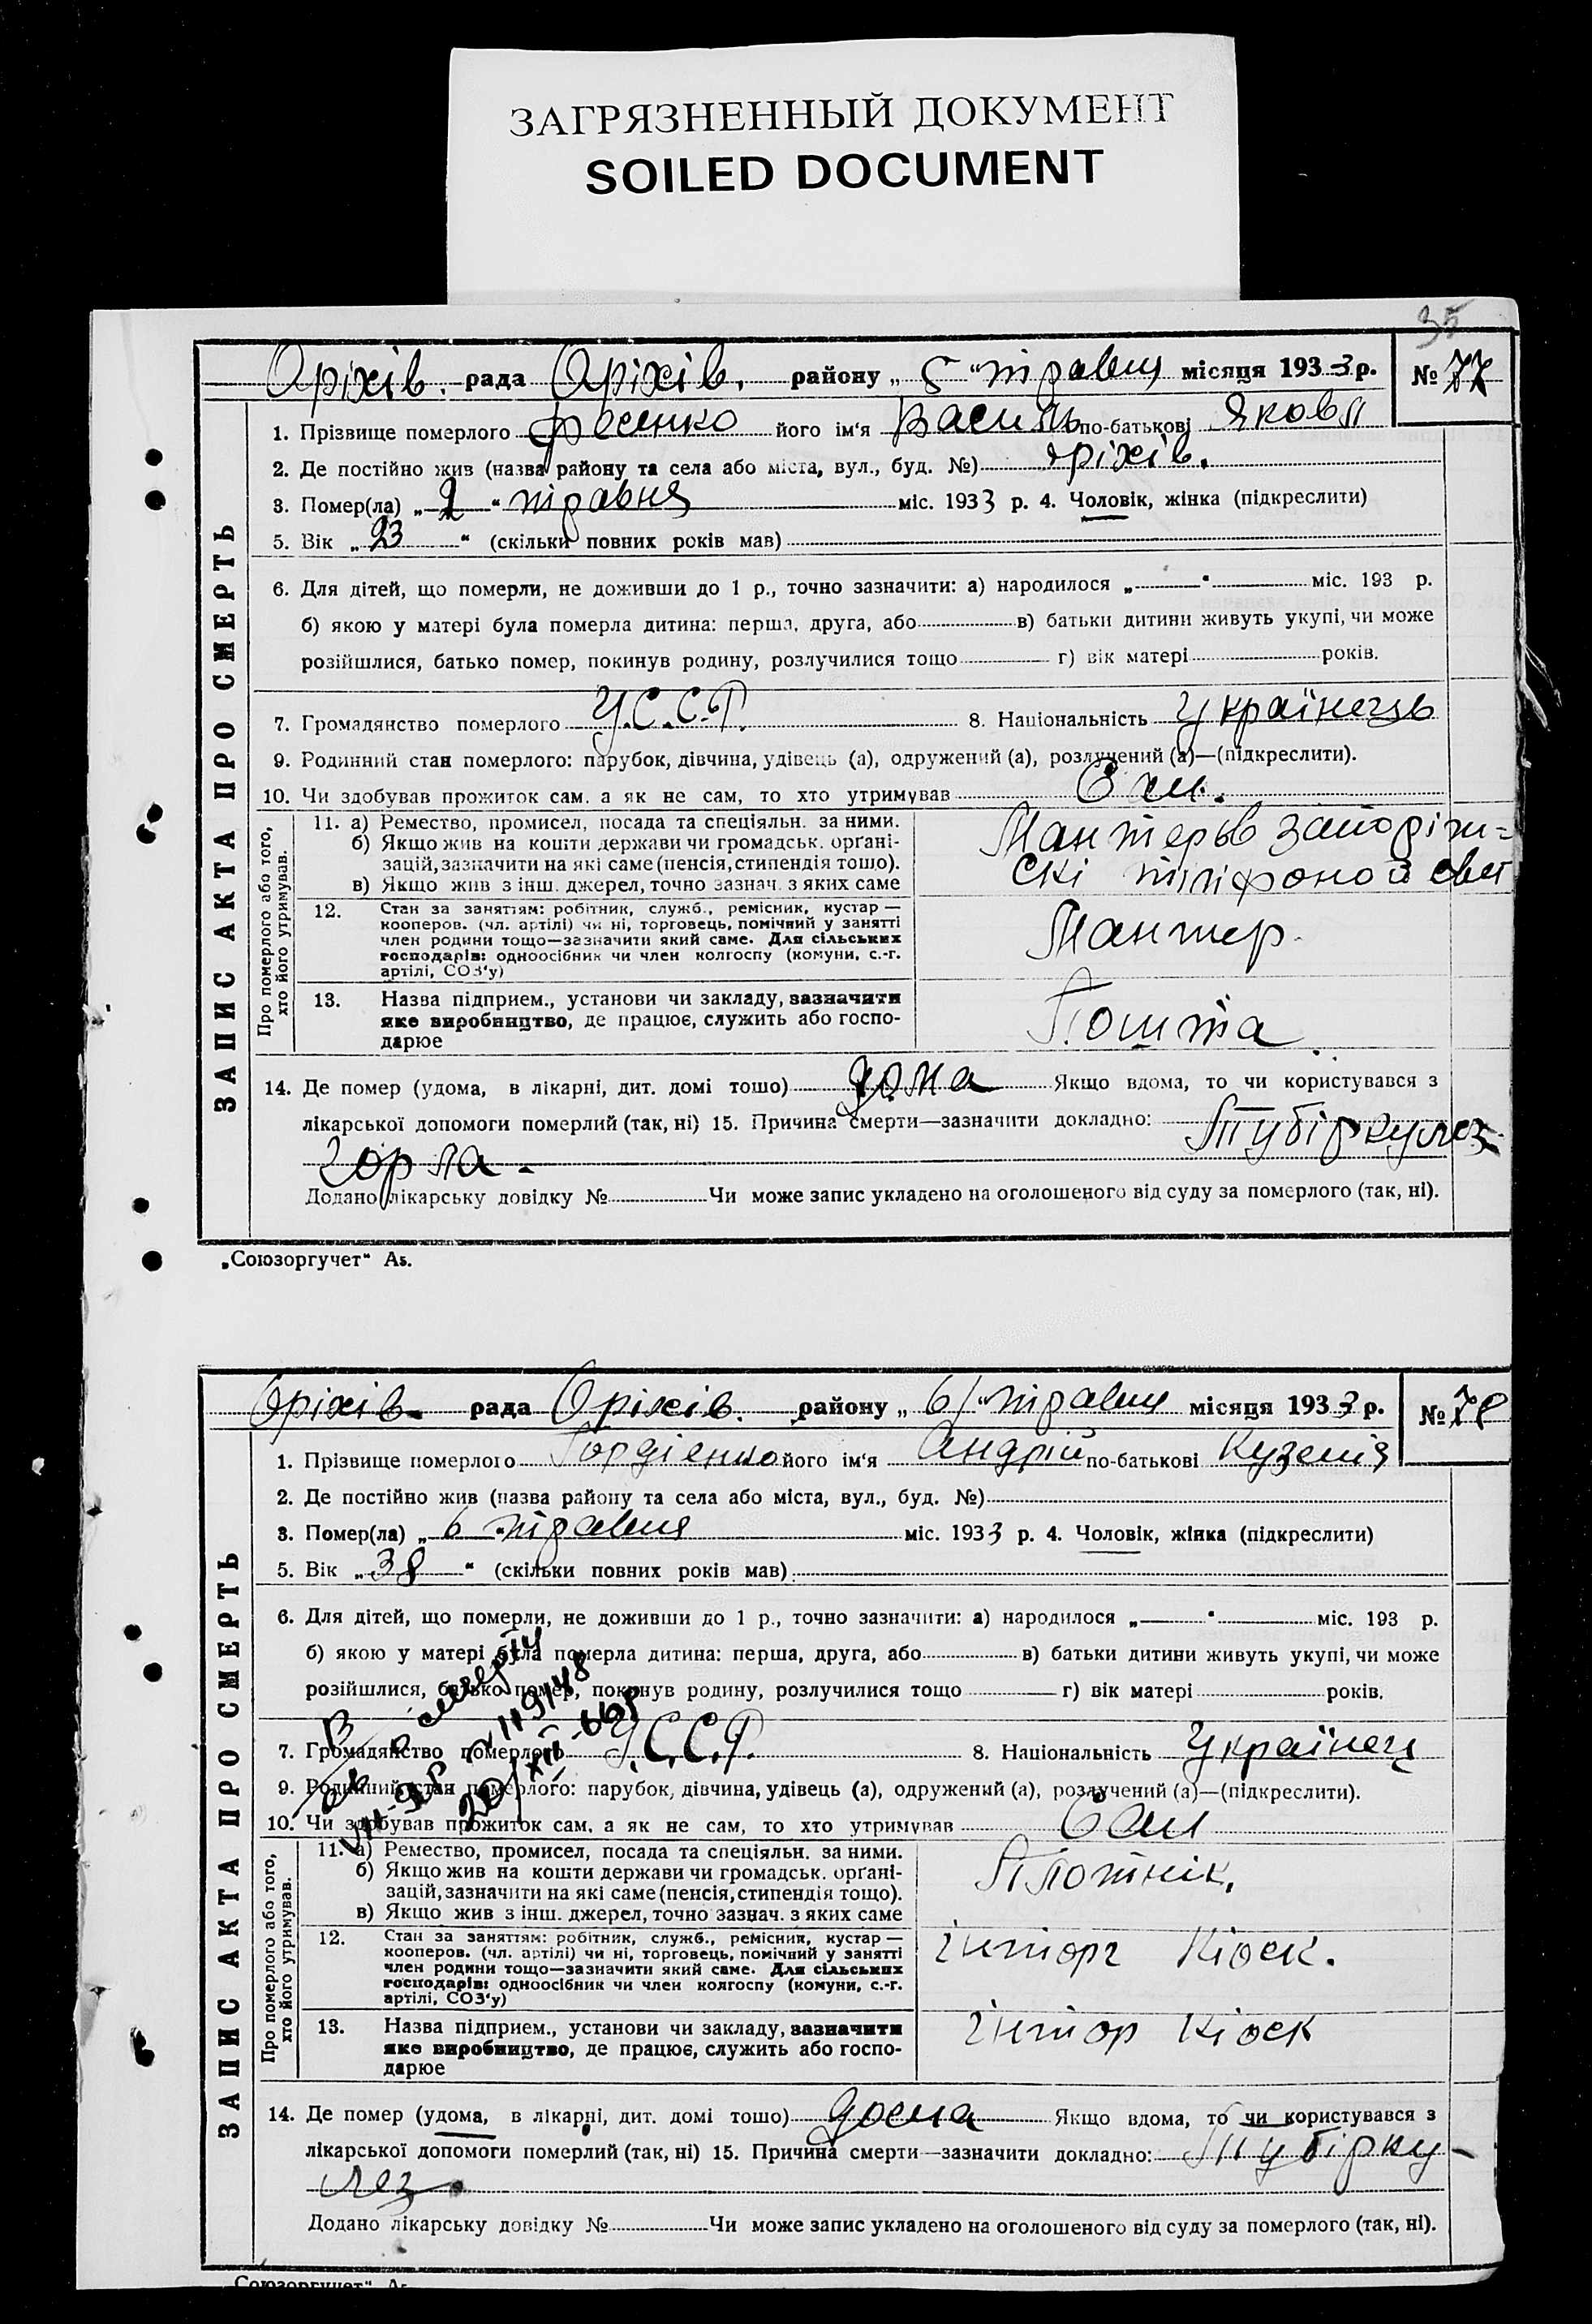 ЗАГРЯЗНЕННЫЙ ДОКУМЕНТ
SOILED DOCUMENT
35
Оріхів. рада Оріхів. району „ 5 “ травня місяця 1933 р. № 77
ЗАПИС АКТА ПРО СМЕРТЬ
1. Прізвище померлого Фесенко його ім‘я Василь по-батькові Яковл
2. Де постійно жив (назва району та села або міста, вул., буд. №) Оріхів.
3. Помер(ла) „ 2 “ травня міс. 1933 р. 4. Чоловік, жінка (підкреслити)
5. Вік „ 23 “ (скільки повних років мав)
6. Для дітей, що померли, не доживши до 1 р., точно зазначити: а) народилося „ “ міс. 193 р.
б) якою у матері була померла дитина: перша, друга, або в) батьки дитини живуть укупі, чи може
розійшлися, батько помер, покинув родину, розлучилися тощо г) вік матері років.
7. Громадянство померлого У.С.С.Р. 8. Національність Українець
9. Родинний стан померлого: парубок, дівчина, удівець (а), одружений (а), розлучений (а)—(підкреслити).
10. Чи здобував прожиток сам, а як не сам, то хто утримував Сам.
Про померлого або того,
хто його утримував.
11. а) Ремество, промисел, посада та спеціяльн. за ними.
б) Якщо жив на кошти держави чи громадськ. орґані-
зацій, зазначити на які саме (пенсія, стипендія тощо).
в) Якщо жив з інш. джерел, точно зазнач. з яких саме
Мантерьв
скі
12. Стан за заняттям: робітник, служб., ремісник, кустар —
кооперов. (чл. артілі) чи ні, торговець, помічний у занятті
член родини тощо—зазначити який саме. Для сільських
господарів: одноосібник чи член колгоспу (комуни, с.-г.
артілі, СОЗ‘у)
Мантер.
13. Назва підприєм., установи чи закладу, зазначити
яке виробництво, де працює, служить або госпо-
дарює
Пошта
14. Де помер (удома, в лікарні, дит. домі тошо) дома Якщо вдома, то чи користувався з
лікарської допомоги померлий (так, ні) 15. Причина смерти—зазначити докладно: Тубіркулоз
горла.
Додано лікарську довідку № Чи може запис укладено на оголошеного від суду за померлого (так, ні).
„Союзоргучет“ А5.
Оріхів. рада Оріхів. району „ 6 “ травня місяця 1933 р. № 78
ЗАПИС АКТА ПРО СМЕРТЬ
1. Прізвище померлого Гордієнко його ім‘я Андрій по-батькові Кузмів
2. Де постійно жив (назва району та села або міста, вул., буд. №)
3. Помер(ла) „ 6 “ травня міс. 1933 р. 4. Чоловік, жінка (підкреслити)
5. Вік „ 38 “ (скільки повних років мав)
6. Для дітей, що померли, не доживши до 1 р., точно зазначити: а) народилося „ “ міс. 193 р.
б) якою у матері була померла дитина: перша, друга, або в) батьки дитини живуть укупі, чи може
розійшлися, батько помер, покинув родину, розлучилися тощо г) вік матері років.
7. Громадянство померлого У.С.С.Р. 8. Національність Українец
9. Родинний стан померлого: парубок, дівчина, удівець (а), одружений (а), розлучений (а)—(підкреслити).
10. Чи здобував прожиток сам, а як не сам, то хто утримував Сам
Про померлого або того,
хто його утримував.
11. а) Ремество, промисел, посада та спеціяльн. за ними.
б) Якщо жив на кошти держави чи громадськ. орґані-
зацій, зазначити на які саме (пенсія, стипендія тощо).
в) Якщо жив з інш. джерел, точно зазнач. з яких саме
Плотнік.
12. Стан за заняттям: робітник, служб., ремісник, кустар —
кооперов. (чл. артілі) чи ні, торговець, помічний у занятті
член родини тощо—зазначити який саме. Для сільських
господарів: одноосібник чи член колгоспу (комуни, с.-г.
артілі, СОЗ‘у)
інторг Кіоск.
13. Назва підприєм., установи чи закладу, зазначити
яке виробництво, де працює, служить або госпо-
дарює
інтор Кіоск
14. Де помер (удома, в лікарні, дит. домі тошо) дома Якщо вдома, то чи користувався з
лікарської допомоги померлий (так, ні) 15. Причина смерти—зазначити докладно: Тубірку-
лез.
Додано лікарську довідку № Чи може запис укладено на оголошеного від суду за померлого (так, ні).
„Союзоргучет“ А5.